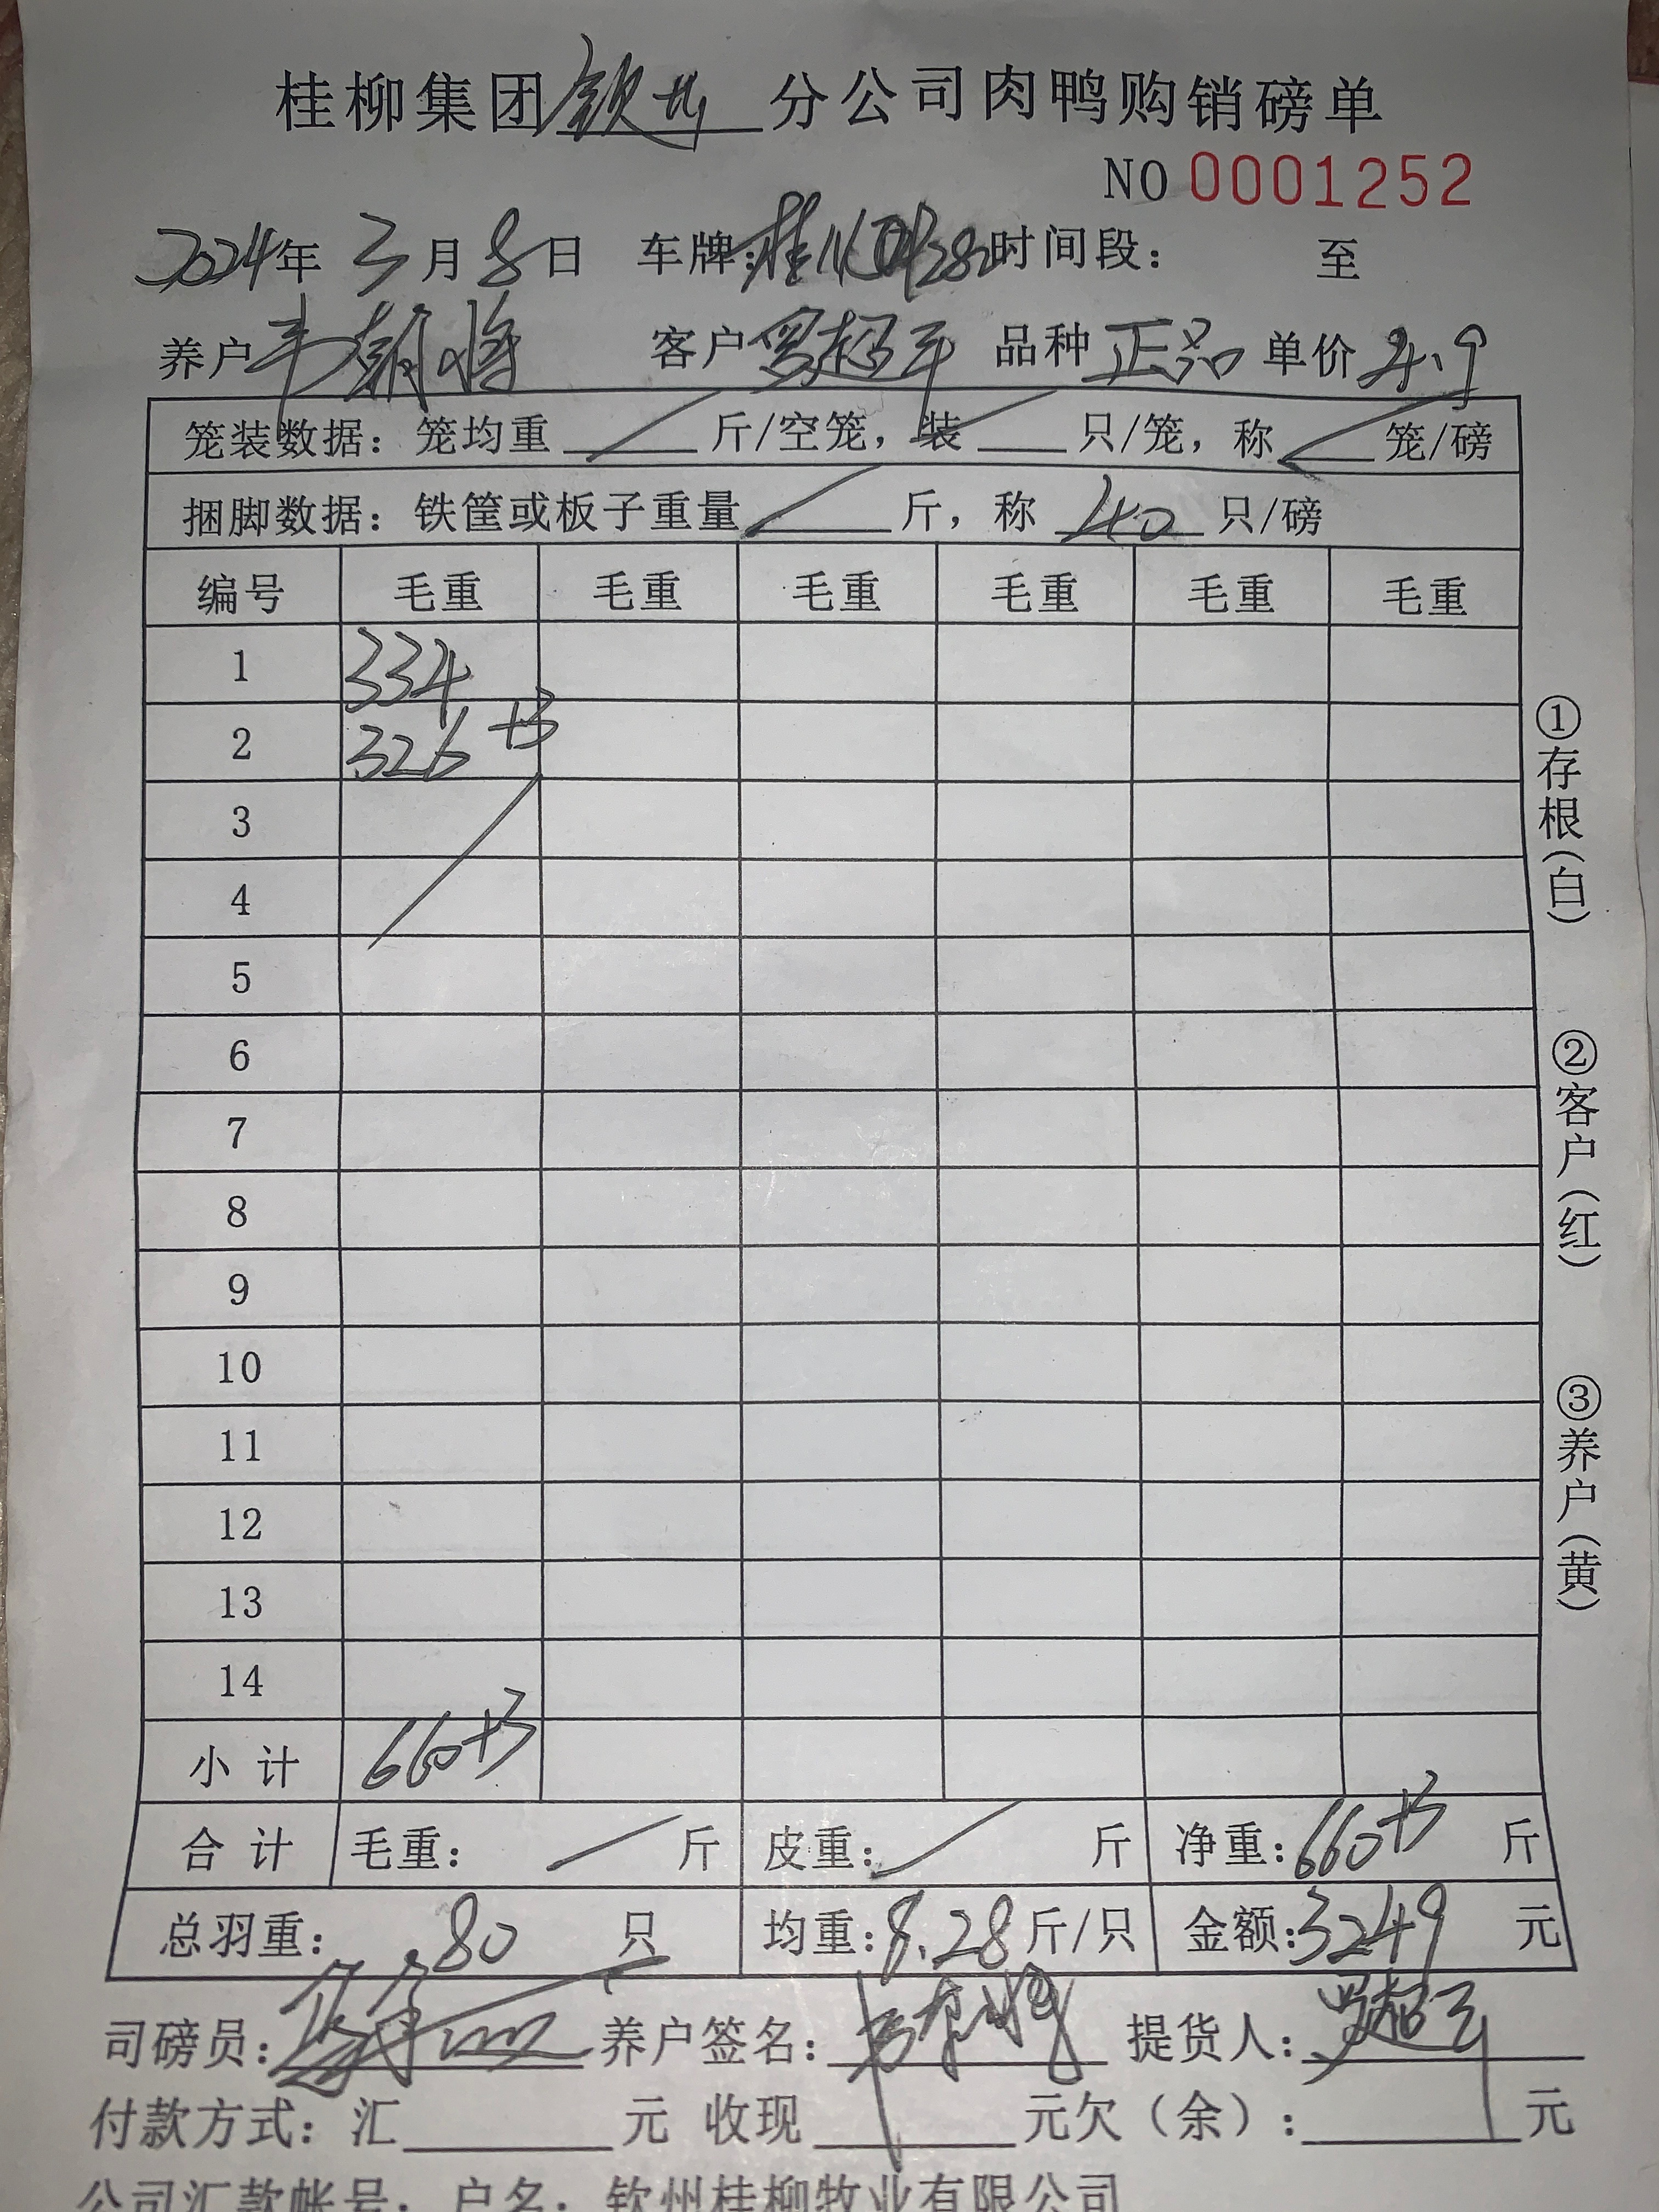 桂柳集团钦北分公司肉鸭购销磅单
NO 0001252
2024年 3月 8日 车牌：桂 时间段： 至
养户 韦朝将 客户 罗超平 品种 正品 单价 4.9
笼装数据：笼均重 斤/空笼，装 只/笼，称 笼/磅
捆脚数据：铁筐或板子重量 斤，称 40 只/磅
编号 毛重 毛重 毛重 毛重 毛重 毛重
1 334
2 326 +3
3
4
5
6
7
8
9
10
11
12
13
14
小计 660+3
合计 毛重： 斤 皮重： 斤 净重：660+3 斤
总羽重： 80 只 均重：8.28斤/只 金额：3249 元
司磅员： 养户签名： 提货人：罗超平
付款方式：汇 元 收现 元欠（余）： 元
公司汇款帐号：户名：钦州桂柳牧业有限公司
①存根（白）
②客户（红）
③养户（黄）